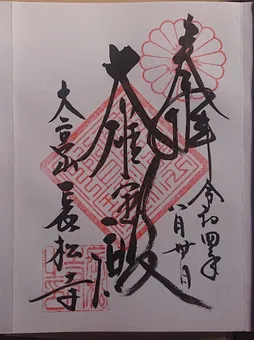 奉拝
令和四年
八月廿一日
大雄宝殿
長松寺